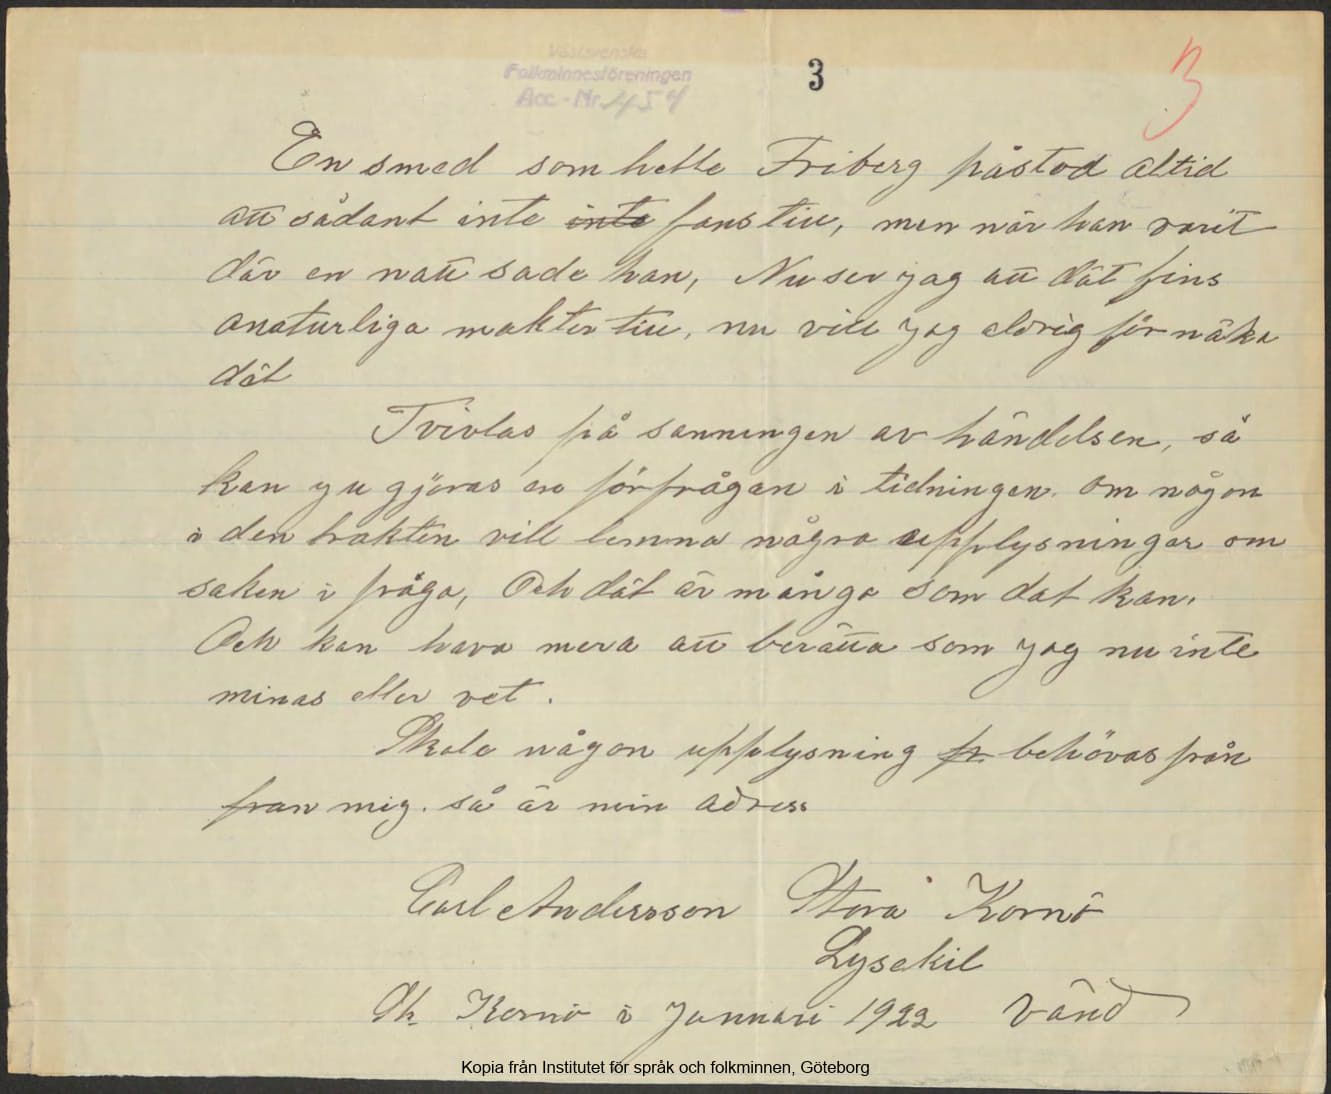 Västsvenska
Folkminnesföreningen
Acc.-Nr. 454
3
3
En smed som hette Friberg påstod altid
att sådant inte inte fans till, men när han varit
där en natt sade han, Nu ser jag att dät fins
onaturliga makter till, nu vill jag aldrig förnäka
dät
Tvivlas på sanningen av händelsen, så
kan ju gjöras en förfrågan i tidningen. om någon
i den trakten vill lemna några upplysningar om
saken i fråga, Och dät är många som dät kan.
Och kan hava mera att berätta som jag nu inte
minas eller vet.
Skale någon upplysning fr behövas från
fran mig. så är min adress
Carl Andersson Stora Kornö
Lysekil
St. Kornö i Januari 1922 Vänd
Kopia från Institutet för språk och folkminnen, Göteborg